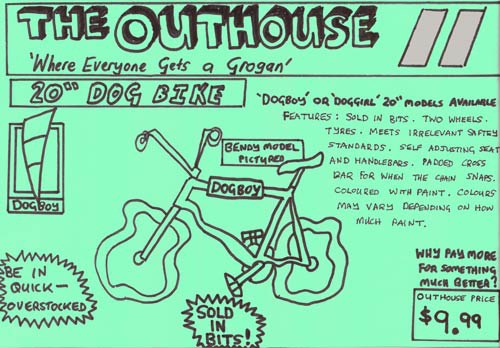 THE OUTHOUSE
'Where Everyone Gets a Grogan'
20" DOG BIKE
'DOGBOY' OR 'DOGGIRL' 20" MODELS AVAILABLE
FEATURES: SOLD IN BITS. TWO WHEELS.
TYRES. MEETS IRRELEVANT SAFETY
STANDARDS. SELF ADJUSTING SEAT
AND HANDLEBARS. PADDED CROSS
BAR FOR WHEN THE CHAIN SNAPS.
COLOURED WITH PAINT. COLOURS
MAY VARY DEPENDING ON HOW
MUCH PAINT.
BENDY MODEL
PICTURED
DOGBOY
DOGBOY
BE IN
QUICK-
OVERSTOCKED
SOLD
IN
BITS!
WHY PAY MORE
FOR SOMETHING
MUCH BETTER?
OUTHOUSE PRICE
$9.99